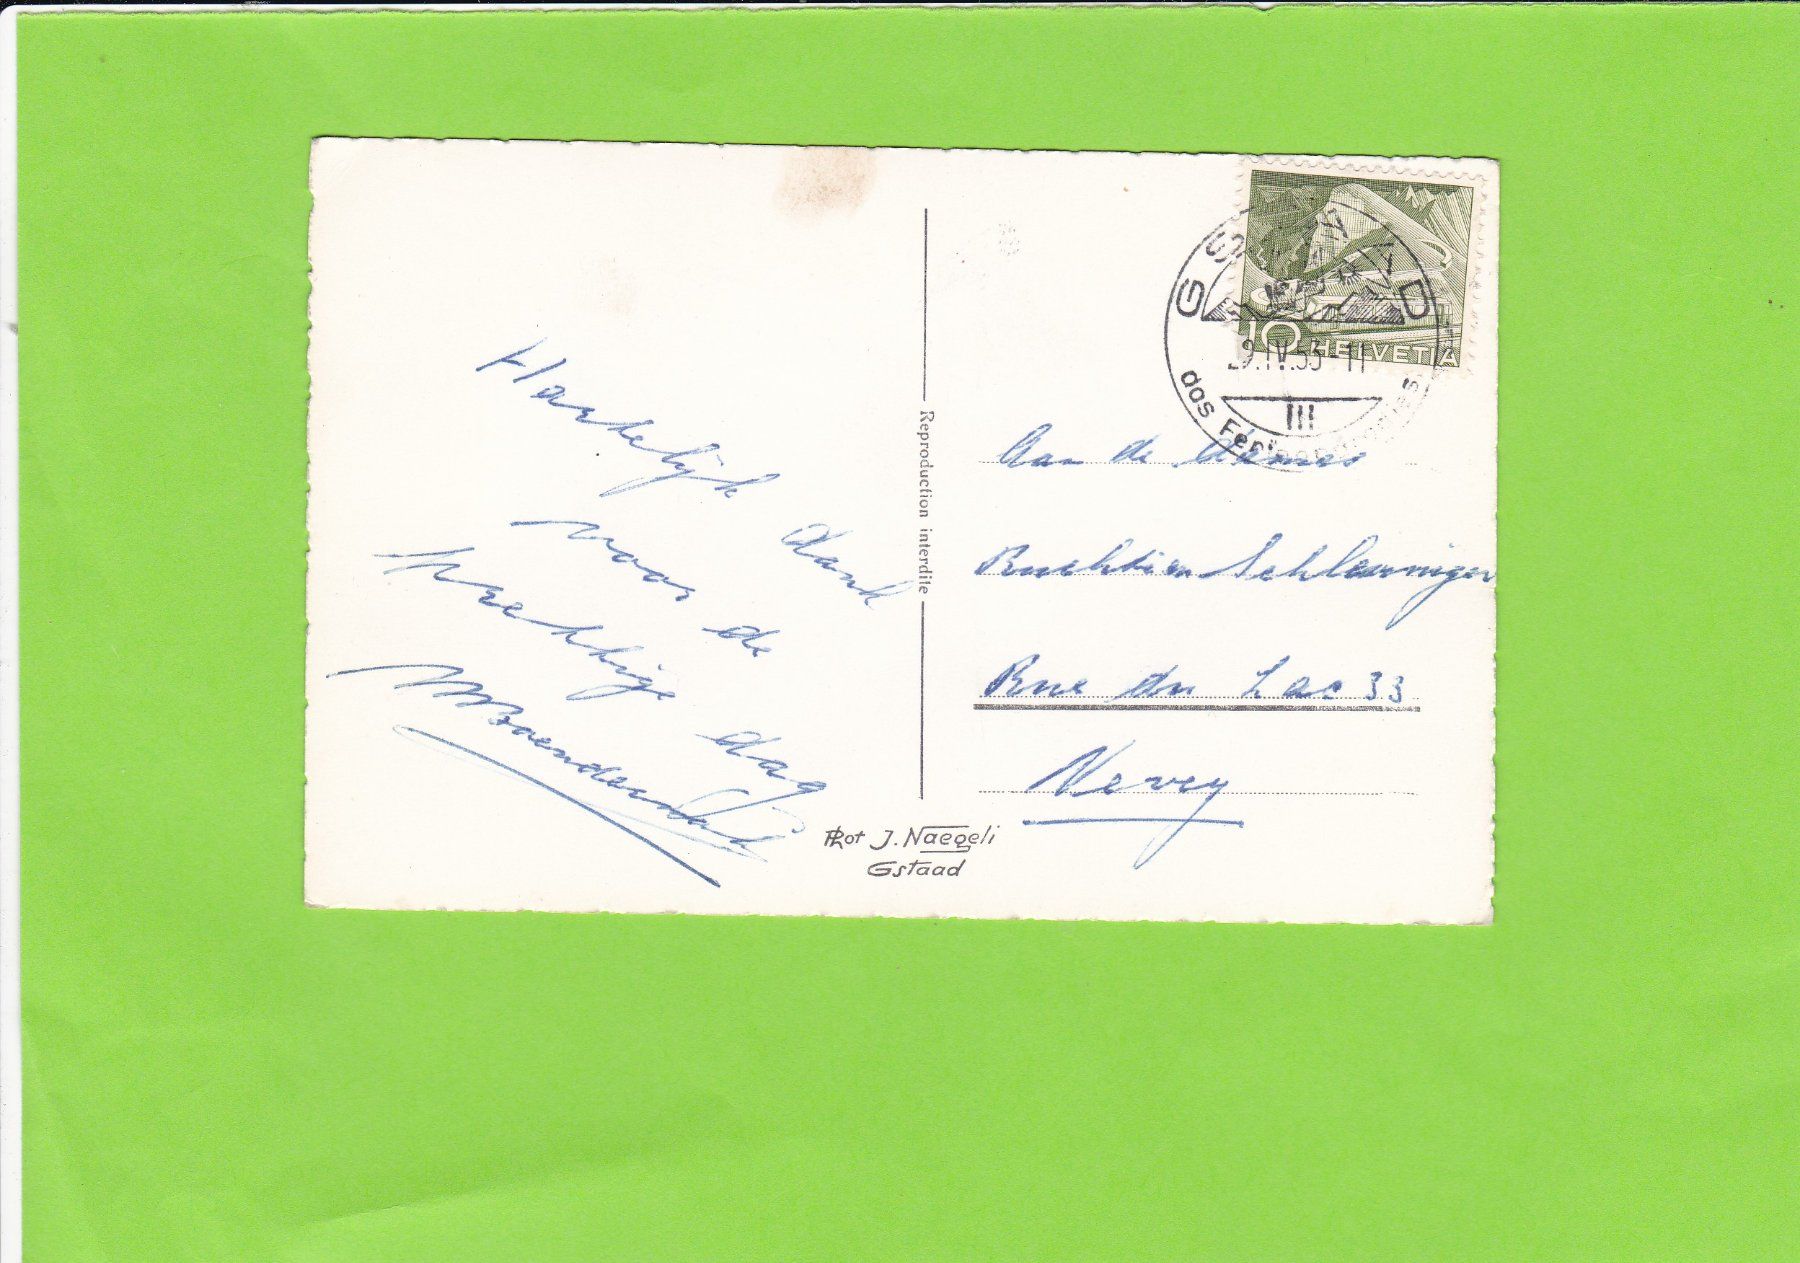 Hartelijk dank
voor de
prachtige dag
Reproduction interdite
Phot J. Naegeli
Gstaad
GSTAAD
10 HELVETIA
9.IV.53-11
III
das
Aan de dames
Schleuniger
Rue du Lac 33
Vevey